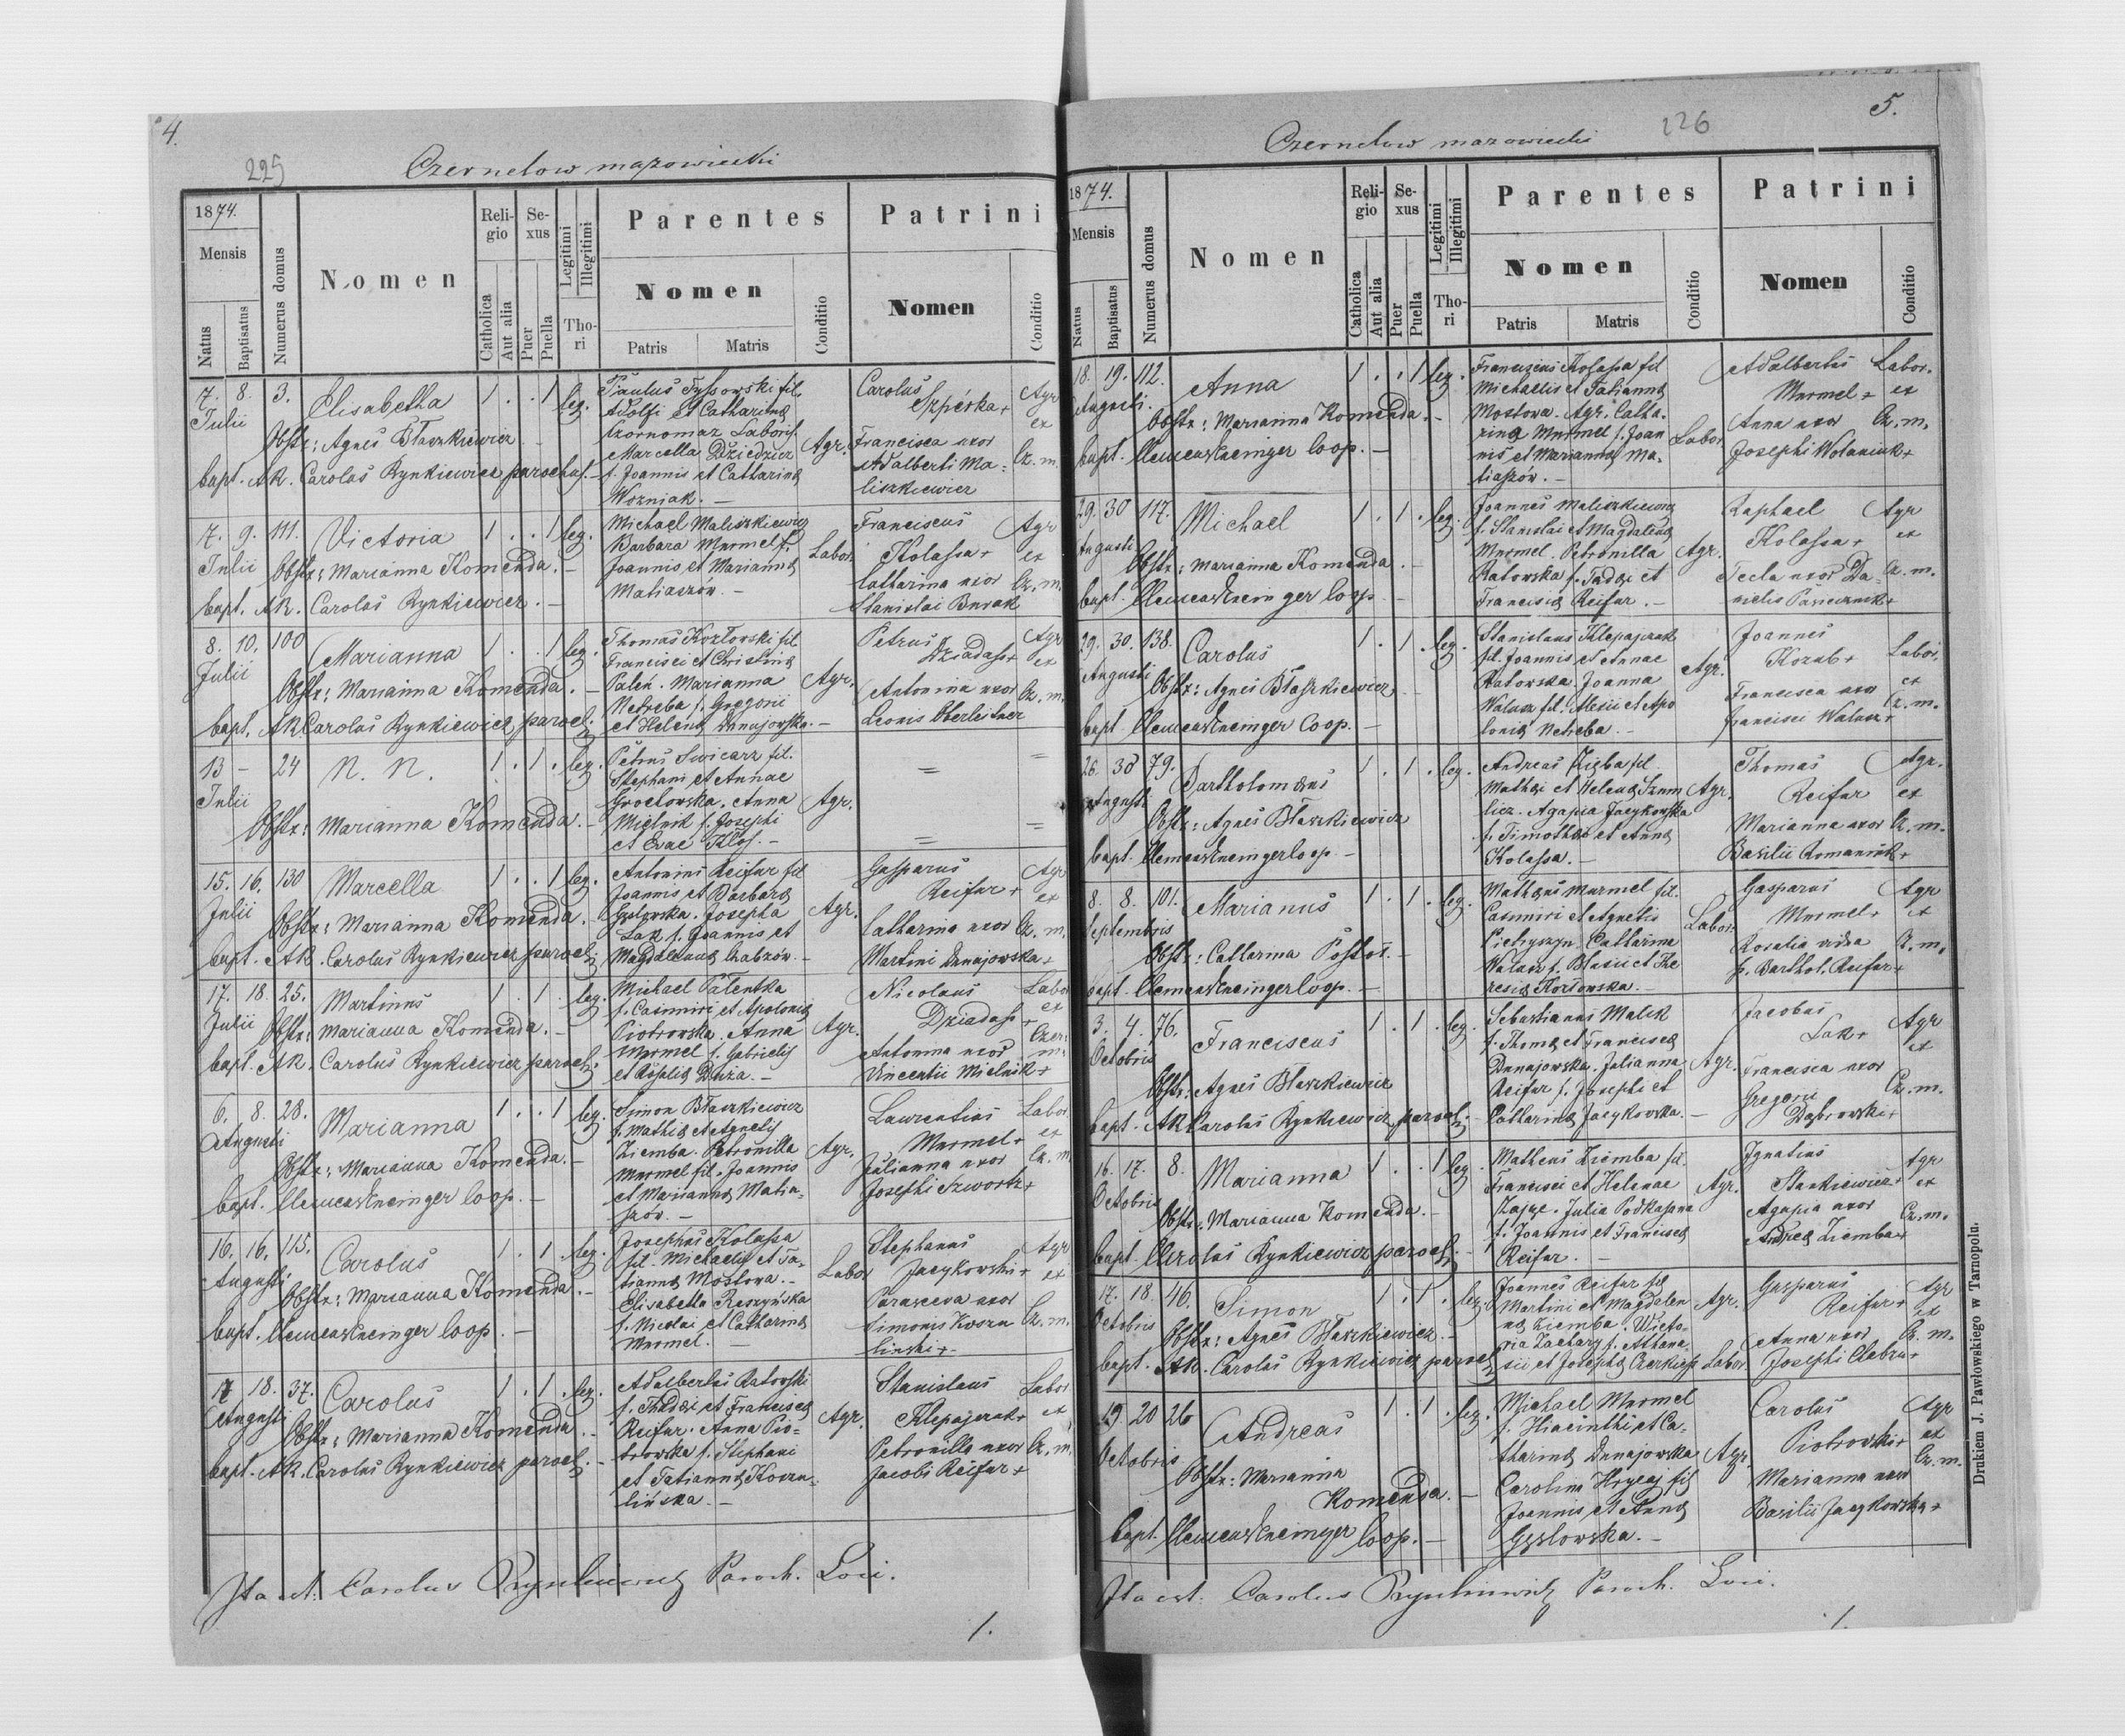 4.
225
Czernelow mazowiecki
1874.
Mensis
Natus
Baptisatus
Numerus domus
Nomen
Religio
Catholica
Aut alia
Sexus
Puer
Puella
Legitimi
Illegitimi
Thori
Parentes
Nomen
Patris
Matris
Conditio
Patrini
Nomen
Conditio
7. 8. 3. Elisabetha 1 . . 1 leg.
Julii
Obstx: Agnes Błaszkiewicz
bapt. AR. Carolus Rynkiewicz parochus. -
Paulus Tyssowski fil.
Adolfi et Catharinæ
Czornomaz Laboris.
Marcella Dziedzicz
f. Joannis et Catharinæ
Wozniak. -
Agr.
Carolus
Szpērka +
Francisca uxor
Adalberti Ma-
liszkiewicz
Agr
ex
Cz. m.
7. 9. 111. Victoria 1 . . 1 leg.
Julii
Obstx: Marianna Komenda. -
bapt. AR. Carolus Rynkiewicz. -
Michael Maliszkiewicz
Barbara Murmel f.
Joannis et Mariannæ
Matiaszów. -
Labor.
Franciscus
Kolassa +
Catharina uxor
Stanislai Burak
Agr
ex
Cz. m.
8. 10. 100 Marianna 1 . . 1 leg.
Julii
Obstx: Marianna Komenda. -
bapt. AR Carolus Rynkiewicz paroch.
Thomas Kozłowski fil.
Francisci et Christinæ
Paleń. Marianna
Netreba f. Gregorii
et Helenæ Dunajowska. -
Agr.
Petrus
Dziadas +
Antonina uxor
Leonis Oberleitner
Agr
ex
Cz. m.
13 - 24 N. N. 1 . 1 . leg.
Julii
Obstx: Marianna Komenda. -
Petrus Swicarz fil.
Stephani et Annae
Grochowska. Anna
Mielnik f. Josephi
et Evae Kłos. -
Agr.
15. 16. 130 Marcella 1 . . 1 leg.
Julii
Obstx: Marianna Komenda. -
bapt. AR. Carolus Rynkiewicz paroch
Antonius Reifur fil
Joannis et Barbaræ
Gęstowska. Josepha
Łak f. Joannis et
Magdalenæ Chabzów. -
Agr.
Gasparus
Reifur +
Catharina uxor
Martini Dunajowska +
Agr
ex
Cz. m.
17. 18. 25. Martinus 1 . 1 . leg.
Julii
Obstx: Marianna Komenda. -
bapt. AR. Carolus Rynkiewicz paroch.
Michael Palentka
f. Casimiri et Apoloniæ
Piotrowska. Anna
Murmel f. Gabrielis
et Rosaliæ Duża. -
Agr.
Nicolaus
Dziadas +
Antonina uxor
Vincentii Mielnik +
Labor
ex
Czer.
m.
6. 8. 28. Marianna 1 . . 1 leg.
Augusti
Obstx: Marianna Komenda. -
bapt. Clemens Kneinger Coop. -
Simon Błaszkiewicz
f. Mathiæ et Agnetis
Ziemba. Petronilla
Murmel fil. Joannis
et Mariannæ Matia-
szów. -
Agr.
Laurentius
Murmel +
Julianna uxor
Josephi Szwortz +
Labor.
ex
Cz. m.
16. 16. 115. Carolus 1 . 1 . leg.
Augusti
Obstx: Marianna Komenda. -
bapt. Clemens Kneinger Coop. -
Josephus Kolassa
fil. Michaelis et Ta-
tiannæ Mostowa. -
Elisabetha Raszyńska
f. Nicolai et Catharinæ
Murmel. -
Labor
Stephanus
Jacykowski +
Parasceva uxor
Simonis Koszu
liński +
Agr
ex
Cz. m.
17 18. 37. Carolus 1 . 1 . leg.
Augusti
Obstx: Marianna Komenda. -
bapt. AR. Carolus Rynkiewicz paroch. -
Adalbertus Ratowski
f. Thadæi et Franciscæ
Reifur. Anna Pio-
trowska f. Stephani
et Tatiannæ Koszu-
lińska. -
Agr.
Stanislaus
Klepajczak +
Petronilla uxor
Jacobi Reifur +
Labor
ex
Cz. m.
Ita est. Carolus Rynkiewicz Paroch. Loci.
1.
5.
226
Czernelow mazowiecki
1874.
Mensis
Natus
Baptisatus
Numerus domus
Nomen
Religio
Catholica
Aut alia
Sexus
Puer
Puella
Legitimi
Illegitimi
Thori
Parentes
Nomen
Patris
Matris
Conditio
Patrini
Nomen
Conditio
18. 19. 112. Anna 1 . . 1 leg.
Augusti.
Obstx: Marianna Komenda. -
bapt. Clemens Kneinger Coop. -
Franciscus Kolassa fil
Michaelis et Tatiannæ
Mostowa. Agr. Catha-
rina Murmel f. Joan
nis et Mariannæ Ma-
tiaszów. -
Labor
Adalbertus
Murmel +
Anna uxor
Josephi Wolaniuk +
Labor.
ex
Cz. m.
29. 30 117. Michael 1 . 1 . leg.
Augusti
Obstx: Marianna Komenda. -
bapt. Clemens Kneinger Coop -
Joannes Maliszkiewicz
f. Stanislai et Magdalenæ
Murmel. Petronilla
Ratowska f. Tadæi et
Franciscæ Reifur. -
Agr.
Raphael
Kolassa +
Tecla uxor Da-
nielis Pasieczniuk +
Agr
ex
Cz. m.
29. 30. 138. Carolus 1 . 1 . leg.
Augusti
Obstx: Agnes Błaszkiewicz -
bapt Clemens Kneinger Coop. -
Stanislaus Klepajczak
fil. Joannis et Annae
Ratowska. Joanna
Walusz fil. Alexii et Apo
loniæ Netreba. -
Agr.
Joannes
Kozub +
Francisca uxor
Francisci Walusz +
Labor.
ex
Cz. m.
26. 30 79. Bartholomæus 1 . 1 . leg.
Augusti
Obstx: Agnes Błaszkiewicz
bapt. Clemens Kneinger Coop -
Andreas Zięba fil
Mathæi et Helenæ Szum
licz. Agapia Jacykowska
f. Timothæi et Annæ
Kolassa. -
Agr.
Thomas
Reifur
Marianna uxor
Basilii Romaniuk +
Agr.
ex
Cz. m.
8. 8. 101. Marianus 1 . 1 . leg.
Septembris
Obstx: Catharina Postoł. -
bapt. Clemens Kneinger Coop. -
Mathæus Murmel fil.
Casimiri et Agnetis
Pietryszyn. Catharina
Walusz f. Blasii et The
resiæ Kozłowska. -
Labor.
Gasparus
Murmel +
Rosalia vidua
p. Barthol. Reifur +
Agr
ex
Cz. m.
3. 4. 76. Franciscus 1 . 1 . leg.
Octobris
Obstx: Agnes Błaszkiewicz
bapt. AR Carolus Rynkiewicz paroch. -
Sebastianus Malek
f. Thomæ et Franciscæ
Dunajowska. Julianna
Reifur f. Josephi et
Catharinæ Jacykowska. -
Agr.
Jacobus
Łak +
Francisca uxor
Gregorii
Dąbrowski +
Agr
ex
Cz. m.
16. 17. 8. Marianna 1 . . 1 leg
Octobris
Obstx: Marianna Komenda. -
bapt. Carolus Rynkiewicz paroch. -
Matheus Ziemba fil.
Francisci et Helenae
Zając. Julia Podkasana
f. Joannis et Franciscæ
Reifur. -
Agr.
Ignatius
Stankiewicz +
Agapia uxor
Andreæ Ziemba +
Agr
ex
Cz. m.
17. 18. 46. Simon 1 . 1 . leg.
Octobris
Obstx: Agnes Błaszkiewicz. -
bapt. AR. Carolus Rynkiewicz paroch
Joannes Reifur fil
Martini et Magdalen
næ Ziemba. Victo-
ria Zachary f. Athana-
sii et Josephæ Czerkies
Agr.
Labor
Gasparus
Reifur +
Anna uxor
Josephi Chebzu +
Agr
ex
Cz. m.
19 20 26 Andreas 1 . 1 . leg.
Octobris
Obstx: Marianna
Komenda. -
bapt. Clemens Kneinger Coop. -
Michael Murmel
f. Hiacinthi et Ca-
tharinæ Dunajowska
Carolina Hrycaj fil
Joannis et Annæ
Gęstowska. -
Agr.
Carolus
Piotrowski +
Marianna uxor
Basilii Jacykowska +
Agr
ex
Cz. m.
Ita est. Carolus Rynkiewicz Paroch. Loci.
1.
Drukiem J. Pawłowskiego w Tarnopolu.